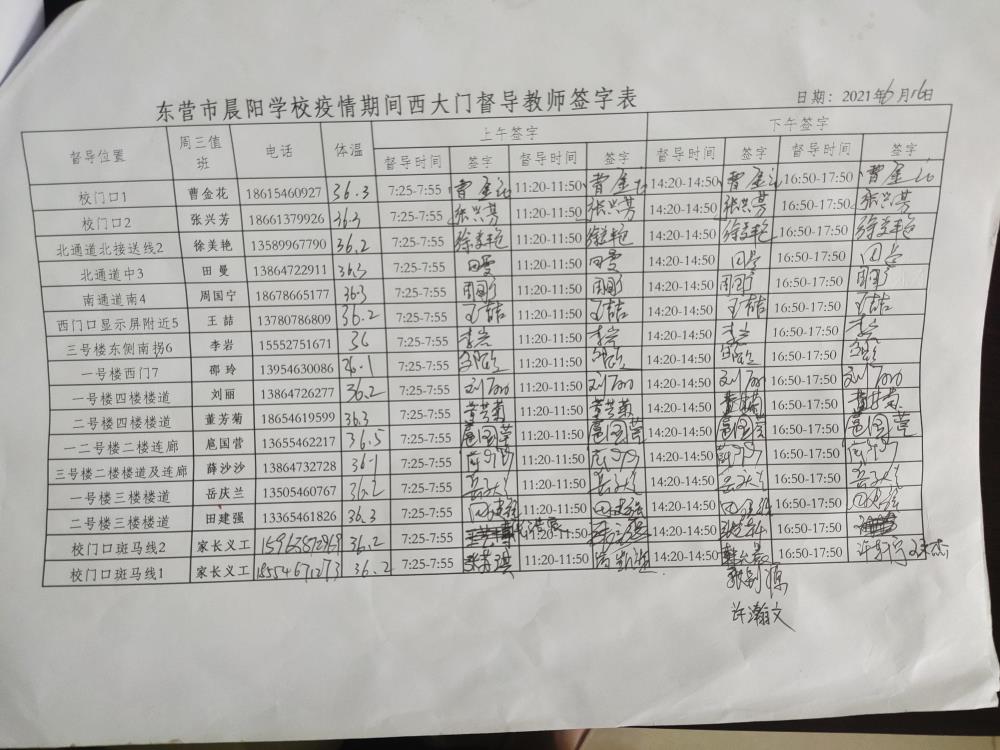 东营市晨阳学校疫情期间西大门督导教师签字表
日期：2021年6月16日
督导位置 周三值班 电话 体温 上午签字 下午签字
督导时间 签字 督导时间 签字 督导时间 签字 督导时间 签字
校门口1 曹金花 18615460927 36.3 7:25-7:55 曹金花 11:20-11:50 曹金花 14:20-14:50 曹金花 16:50-17:50 曹金花
校门口2 张兴芳 18661379926 36.3 7:25-7:55 张兴芳 11:20-11:50 张兴芳 14:20-14:50 张兴芳 16:50-17:50 张兴芳
北通道北接送线2 徐美艳 13589967790 36.2 7:25-7:55 徐美艳 11:20-11:50 徐美艳 14:20-14:50 徐美艳 16:50-17:50 徐美艳
北通道中3 田曼 13864722911 36.3 7:25-7:55 田曼 11:20-11:50 田曼 14:20-14:50 田曼 16:50-17:50 田曼
南通道南4 周国宁 18678665177 36.3 7:25-7:55 11:20-11:50 14:20-14:50 16:50-17:50
西门口显示屏附近5 王喆 13780786809 36.2 7:25-7:55 王喆 11:20-11:50 王喆 14:20-14:50 王喆 16:50-17:50 王喆
三号楼东侧南拐6 李岩 15552751671 36 7:25-7:55 李岩 11:20-11:50 李岩 14:20-14:50 李岩 16:50-17:50 李岩
一号楼西门7 邵玲 13954630086 36.1 7:25-7:55 11:20-11:50 14:20-14:50 16:50-17:50
一号楼四楼楼道 刘丽 13864726277 36.2 7:25-7:55 刘丽 11:20-11:50 刘丽 14:20-14:50 刘丽 16:50-17:50 刘丽
二号楼四楼楼道 董芳菊 18654619599 36.3 7:25-7:55 董芳菊 11:20-11:50 董芳菊 14:20-14:50 董芳菊 16:50-17:50 董芳菊
一二号楼二楼连廊 扈国营 13655462217 36.5 7:25-7:55 扈国营 11:20-11:50 扈国营 14:20-14:50 扈国营 16:50-17:50 扈国营
三号楼二楼楼道及连廊 薛沙沙 13864732728 36.1 7:25-7:55 薛沙沙 11:20-11:50 薛沙沙 14:20-14:50 薛沙沙 16:50-17:50 薛沙沙
一号楼三楼楼道 岳庆兰 13505460767 36.2 7:25-7:55 岳庆兰 11:20-11:50 岳庆兰 14:20-14:50 岳庆兰 16:50-17:50 岳庆兰
二号楼三楼楼道 田建强 13365461826 36.3 7:25-7:55 田建强 11:20-11:50 田建强 14:20-14:50 田建强 16:50-17:50 田建强
校门口斑马线2 家长义工 36.2 7:25-7:55 11:20-11:50 14:20-14:50 16:50-17:50
校门口斑马线1 家长义工 18554671273 36.2 7:25-7:55 11:20-11:50 14:20-14:50 16:50-17:50
许瀚文